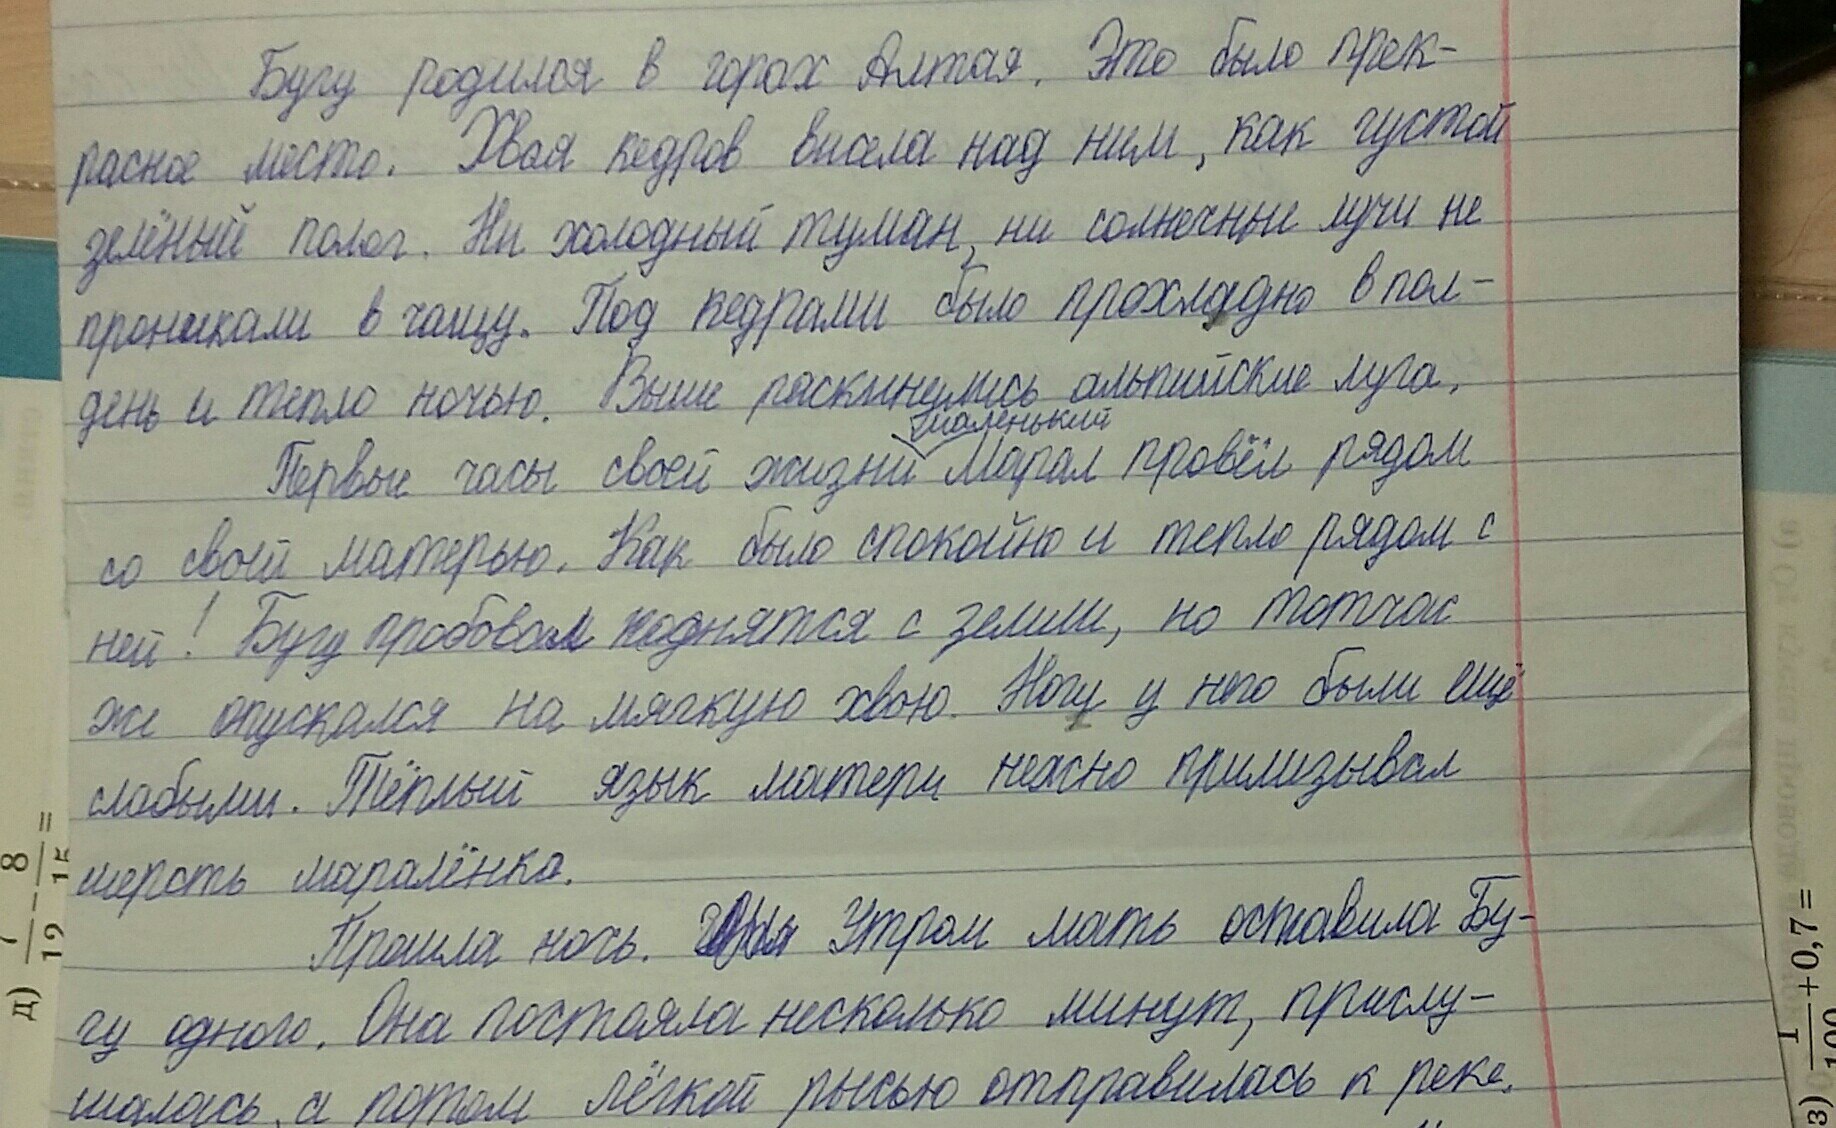 Бугу родился в горах Алтая. Это было прек-
расное место. Хвоя кедров висела над ним, как густой
зелёный полог. Ни холодный туман, ни солнечные лучи не
проникали в чащу. Под кедрами было прохладно в пол-
день и тепло ночью. Выше раскинулись альпийские луга.
маленький
Первые часы своей жизни Марал провёл рядом
со своей матерью. Как было спокойно и тепло рядом с
ней! Бугу пробовал поднятся с земли, но тотчас
же опускался на мягкую хвою. Ноги у него были ещё
слабыми. Тёплый язык матери нежно прилизывал
шерсть маралёнка.
Прошла ночь. Утром мать оставила Бу-
гу одного. Она постояла несколько минут, прислу-
шалась, а потом лёгкой рысью отправилась к реке.
д) 7/12 - 8/15 =
1/100 + 0,7 =
з)